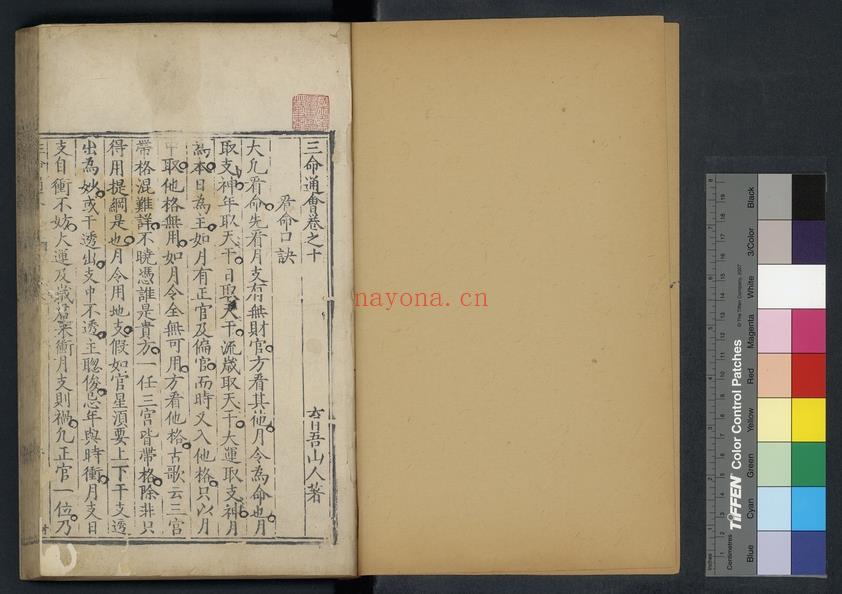 三命通會卷之十
育吾山人著
看命口訣
大凢看命先看月支有無財官方看其他月令為命也月
取支神年取天干日取天干流歲取天干大運取支神月
為本日為主如月有正官及偏官而時又入他格只以月
中取他格無用如月令全無可用方看他格古歌云三官
帶格混難詳不曉憑誰是貴方一任三宮皆帶格除非只
得用提綱是也月令用地支假如官星須要上下干支透
出為妙或干透出支中不透主聰俊忌年與時衝月支日
支自衝不妨大運及歲君來衝月支則禍凢正官一位乃
nayona.cn
TIFFEN Color Control Patches
© The Tiffen Company, 2007
Centimetres
Inches
Blue
Cyan
Green
Yellow
Red
Magenta
White
3/Color
Black